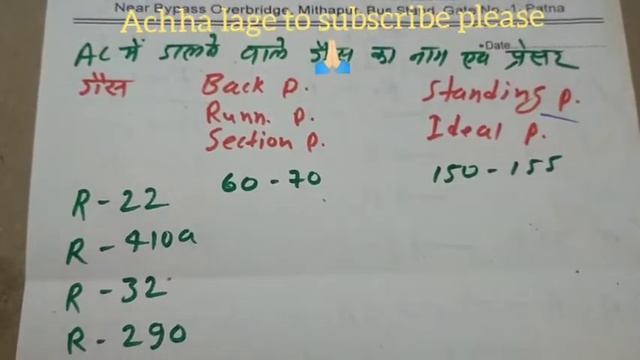 Near Bypass Overbridge, Mithapur, Bus Stand, Gate No.-1, Patna
Achha lage to subscribe please
Date
AC में डालने वाले गैस का नाम एवं प्रेसर
गैस Back p. Standing p.
Runn. p. Ideal p.
Section p.
60-70 150-155
R-22
R-410a
R-32
R-290